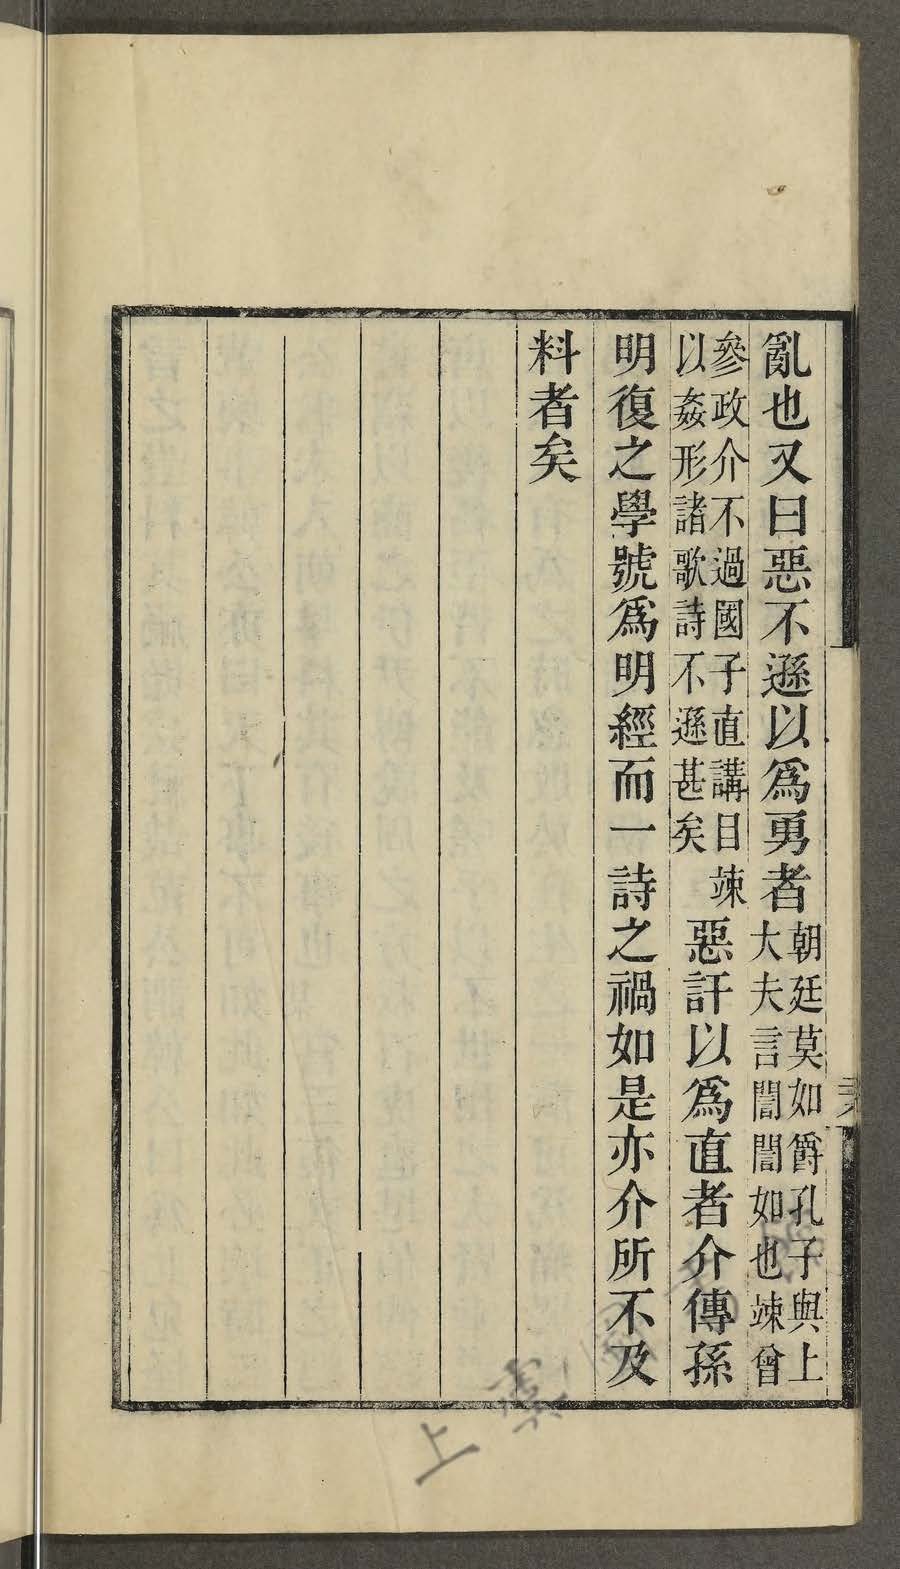 亂也又曰惡不遜以爲勇者朝廷莫如爵孔子與上
大夫言誾誾如也竦曾
參政介不過國子直講目竦
以姦形諸歌詩不遜甚矣惡訐以爲直者介傳孫
明復之學號爲明經而一詩之禍如是亦介所不及
料者矣
上虞